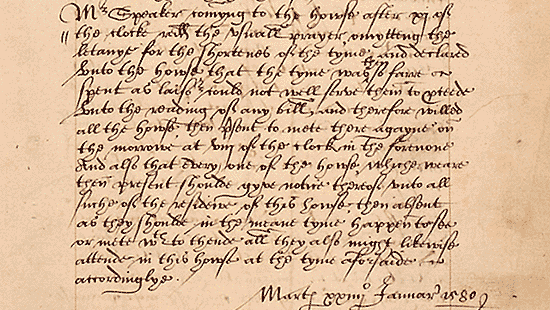 Mr Speaker comyng to the howse after xi of
the clocke redd the usuall prayer omytting the
letanye for the shortenes of the tyme, and declared
unto the howse that the tyme was then so farre
spent as laisr could not well serve them to pceede
unto the reading of any bill, and therefore willed
all the howse then psent to mete there agayne on
the morrowe at viii of the clock in the forenone
And also that every one of the howse whiche weare
then present shoulde gyve notice thereof unto all
suche of the residewe of this howse then absent
as they shoulde in the meane tyme happen to see
or mete wt to thende all they also might likewise
attende in this howse at the tyme aforsaide
accordinglye.
Martis xxiiijo Januar 1580